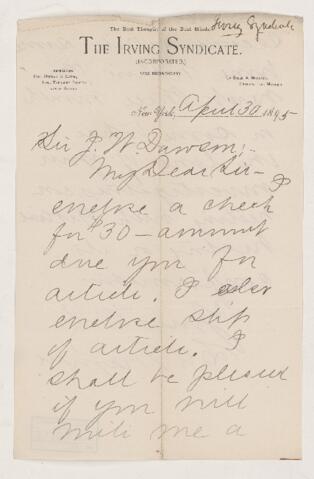 Irving Syndicate
The Best Thoughts of the Best Minds.
THE IRVING SYNDICATE.
(INCORPORATED.)
New York, April 30 1895
Sir J. W. Dawson;
My Dear Sir - I
enclose a check
for $30 - amount
due you for
article. I also
enclose slip
of article. I
shall be pleased
if you will
write me a